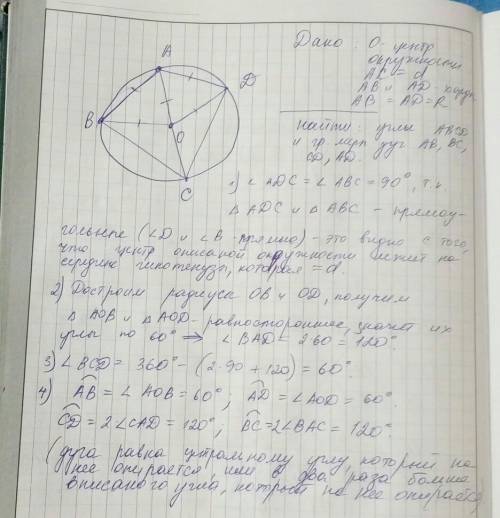 Дано: О-центр
окружности
AC = d
AB и AD-хорды
AB = AD = R
найти: углы ABCD
и гр. меры дуг AB, BC,
CD, AD.
A
D
B
O
C
1) ∠ADC = ∠ABC = 90°, т.к.
△ADC и △ABC - прямоу-
гольные (∠D и ∠B-прямые) - это видно с того,
что центр описаной окружности лежит на
середине гипотенузы, которая = d.
2) Достроим радиусы OB и OD, получим
△AOB и △AOD-равносторонние, значит их
углы по 60° ⇒ ∠BAD = 2·60 = 120°.
3) ∠BCD = 360° - (2·90 + 120) = 60°.
4) ◠AB = ∠AOB = 60°; ◠AD = ∠AOD = 60°.
◠CD = 2∠CAD = 120°; ◠BC = 2∠BAC = 120°.
(дуга равна центральному углу, который на
нее опирается, или в два раза больше
вписаного угла, который на нее опирается)